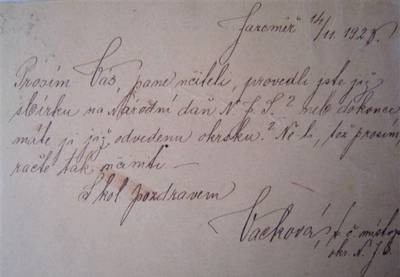 Jaroměř 14/11. 1928.
Prosím Vás, pane učiteli, provedli jste již
sbírku na Národní daň N. J. S.? nebo dokonce
máte ji již odvedenu okrsku? Ne-li, též prosím,
račte tak učiniti. —
Škol pozdravem
Vacková,
okr. N. J.